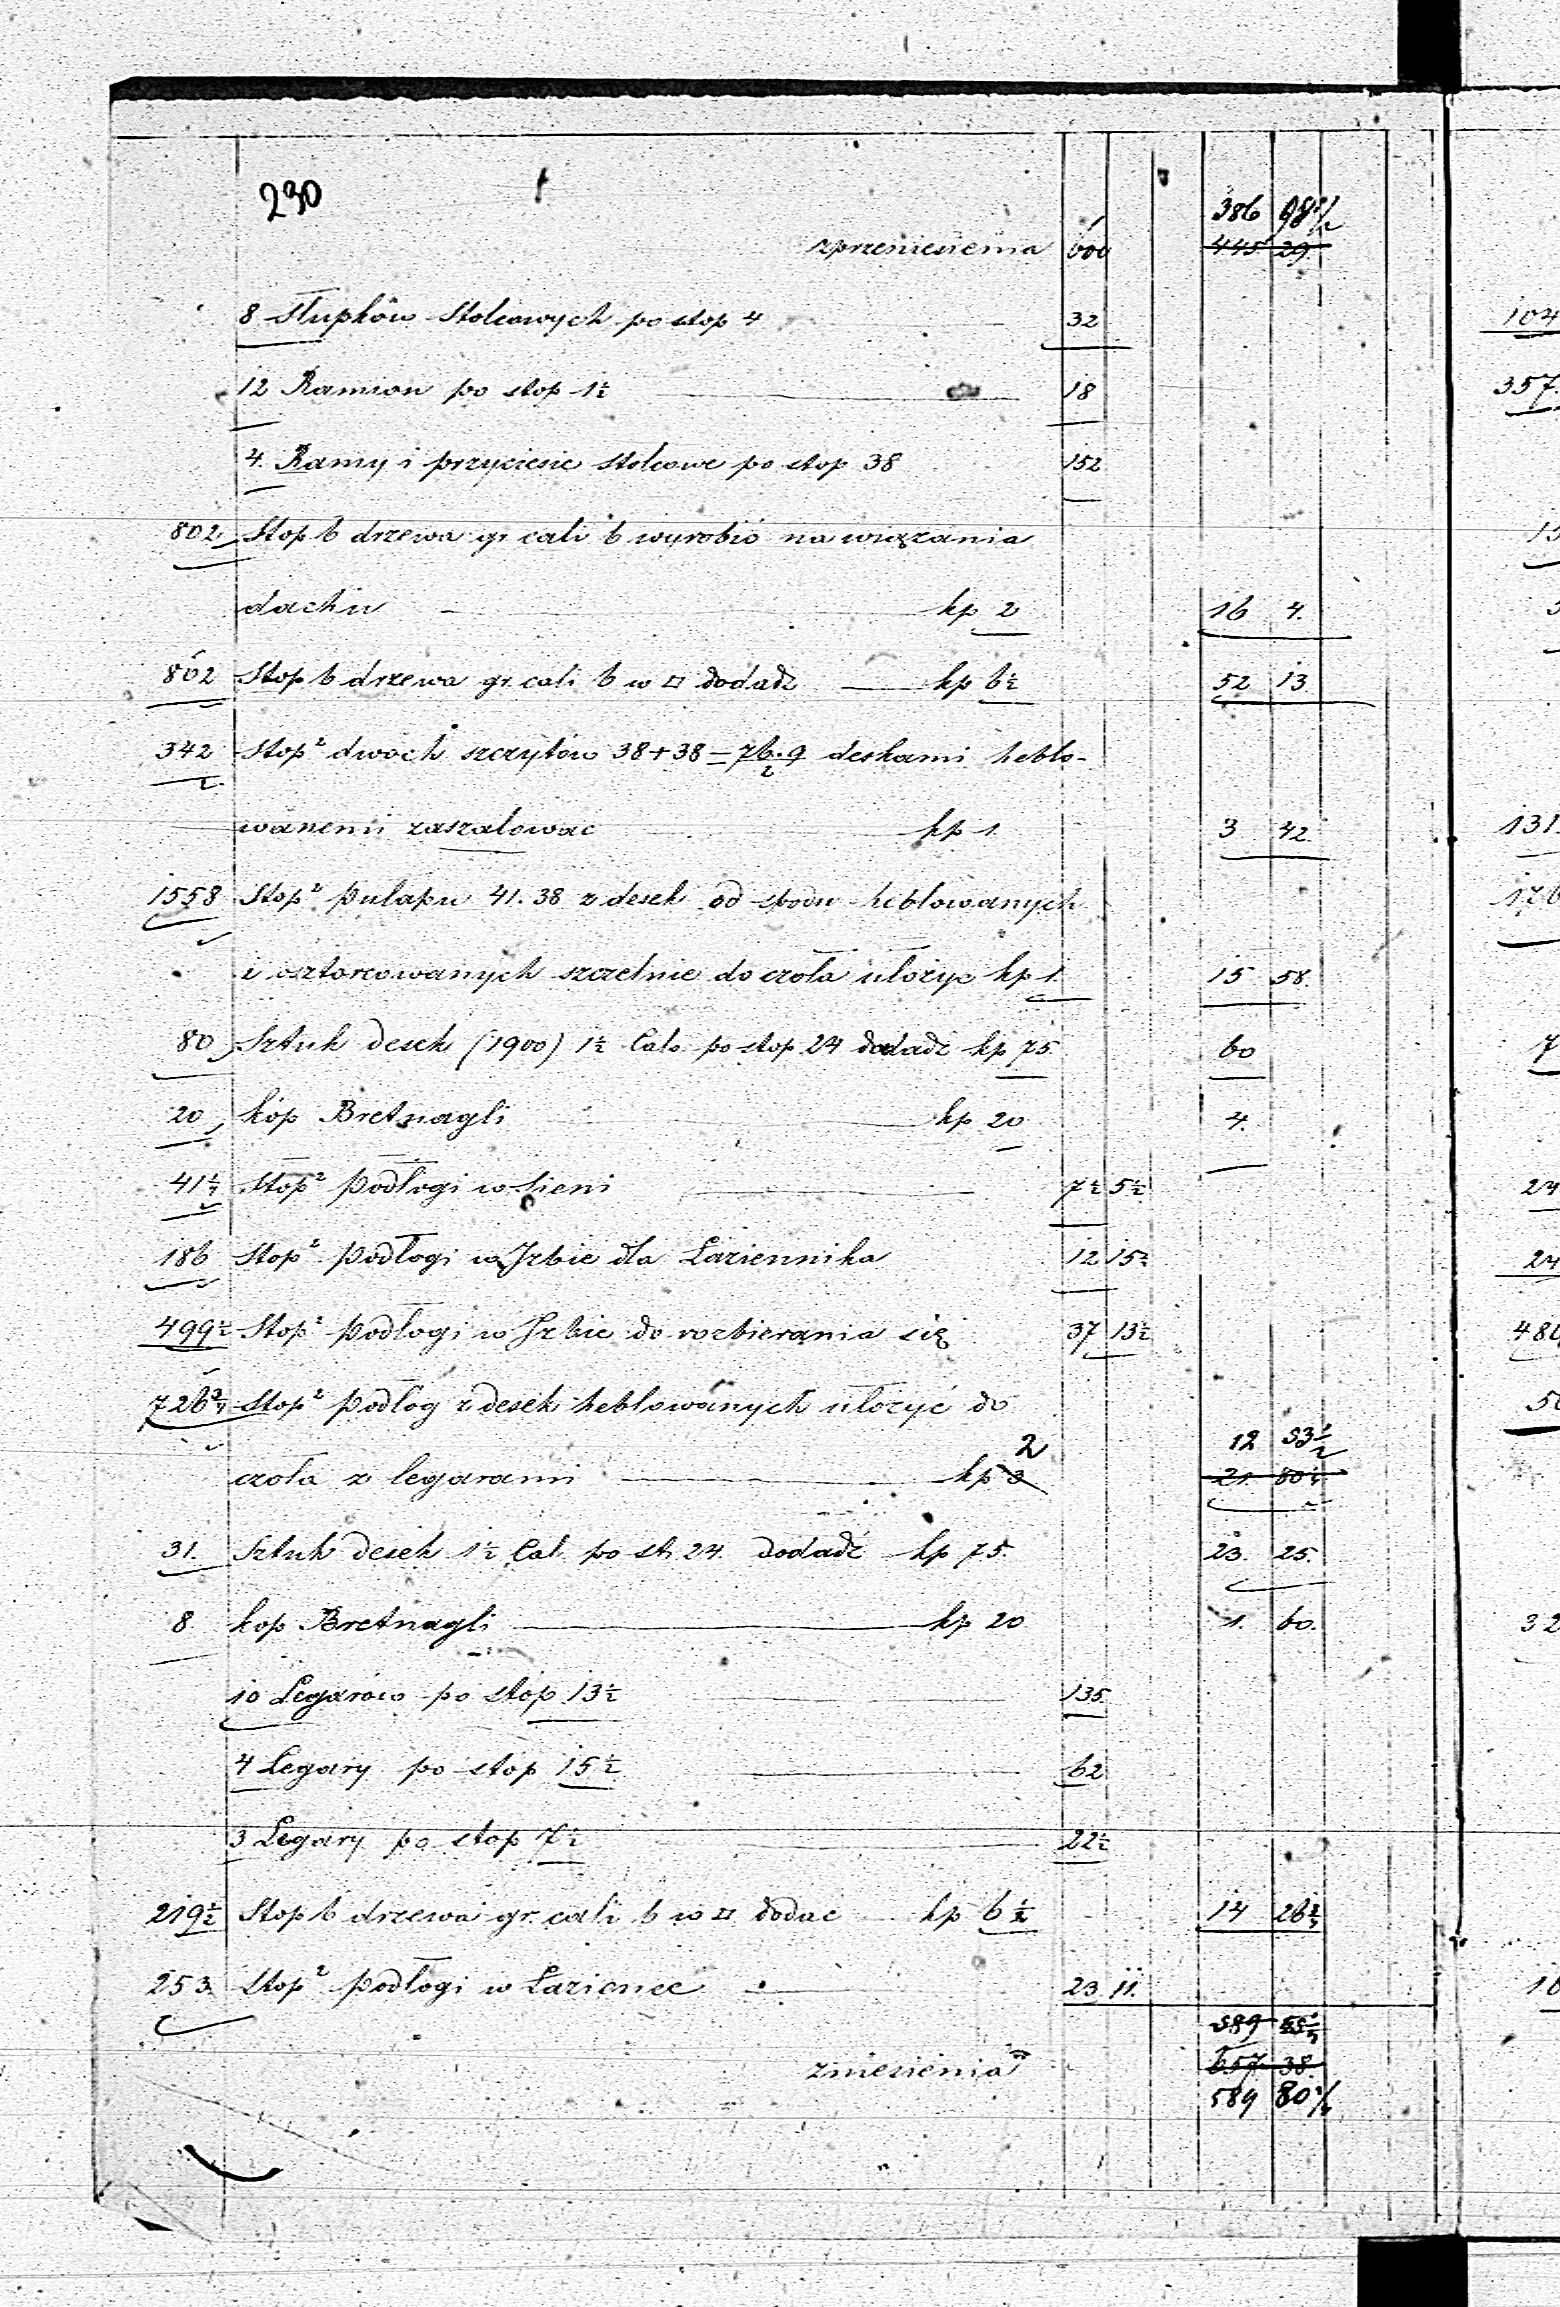 230
386 98 1/2
zprzeniesienia 600 445 29
8 Słupków Stolcowych po stop 4 32
12 Ramion po stop 1½ 18
4. Ramy i przyciesie stolcowe po stop 38 152
802 Stop b drzewa gr cali 6 wyrobić na wiązania
dachu kp 2 16 4.
802 Stop b drzewa gr. cali 6 w □ dodadź kp 6½ 52 13
342 Stop² dwóch szczytów 38+38=76.9/2 deskami heblo-
wanemi zaszalować kp 1. 3 42.
1558 Stop² Pułapu 41.38 z desek od spodu heblowanych
i osztorcowanych szczelnie do czoła ułożyc kp 1. 15 58.
80 Sztuk desek (1900) 1½ Calo. po stop 24 dodadź kp 75. 60
20 kóp Bretnagli kp 20 4.
41¼ Stop² Podłogi w Sieni 7½ 5½
186 Stop² Podłogi w Jzbie dla Łaziennika 12 15½
499½ Stop² Podłogi w Jzbie do rozbierania się 37 13½
726¾ Stop² Podłog z desek heblowanych ułożyć do
2 12 53 1/2
czoła z legarami kp 3 21. 80¼
31. Sztuk desek 1½ Cal. po st. 24. dodadź kp 75. 23. 25.
8. kop Bretnagli kp 20 1. 60.
10 Legarów po stop 13½ 135
4 Legary po stop 15½ 62
3 Legary po stop 7½ 22½
219½ Stop b drzewa gr. cali 6 w □ dodac kp 6½ 14 26¾
253. Stop² Podłogi w Łazience 23 11.
589 55¼
zniesienia 657. 38.
589 80¼